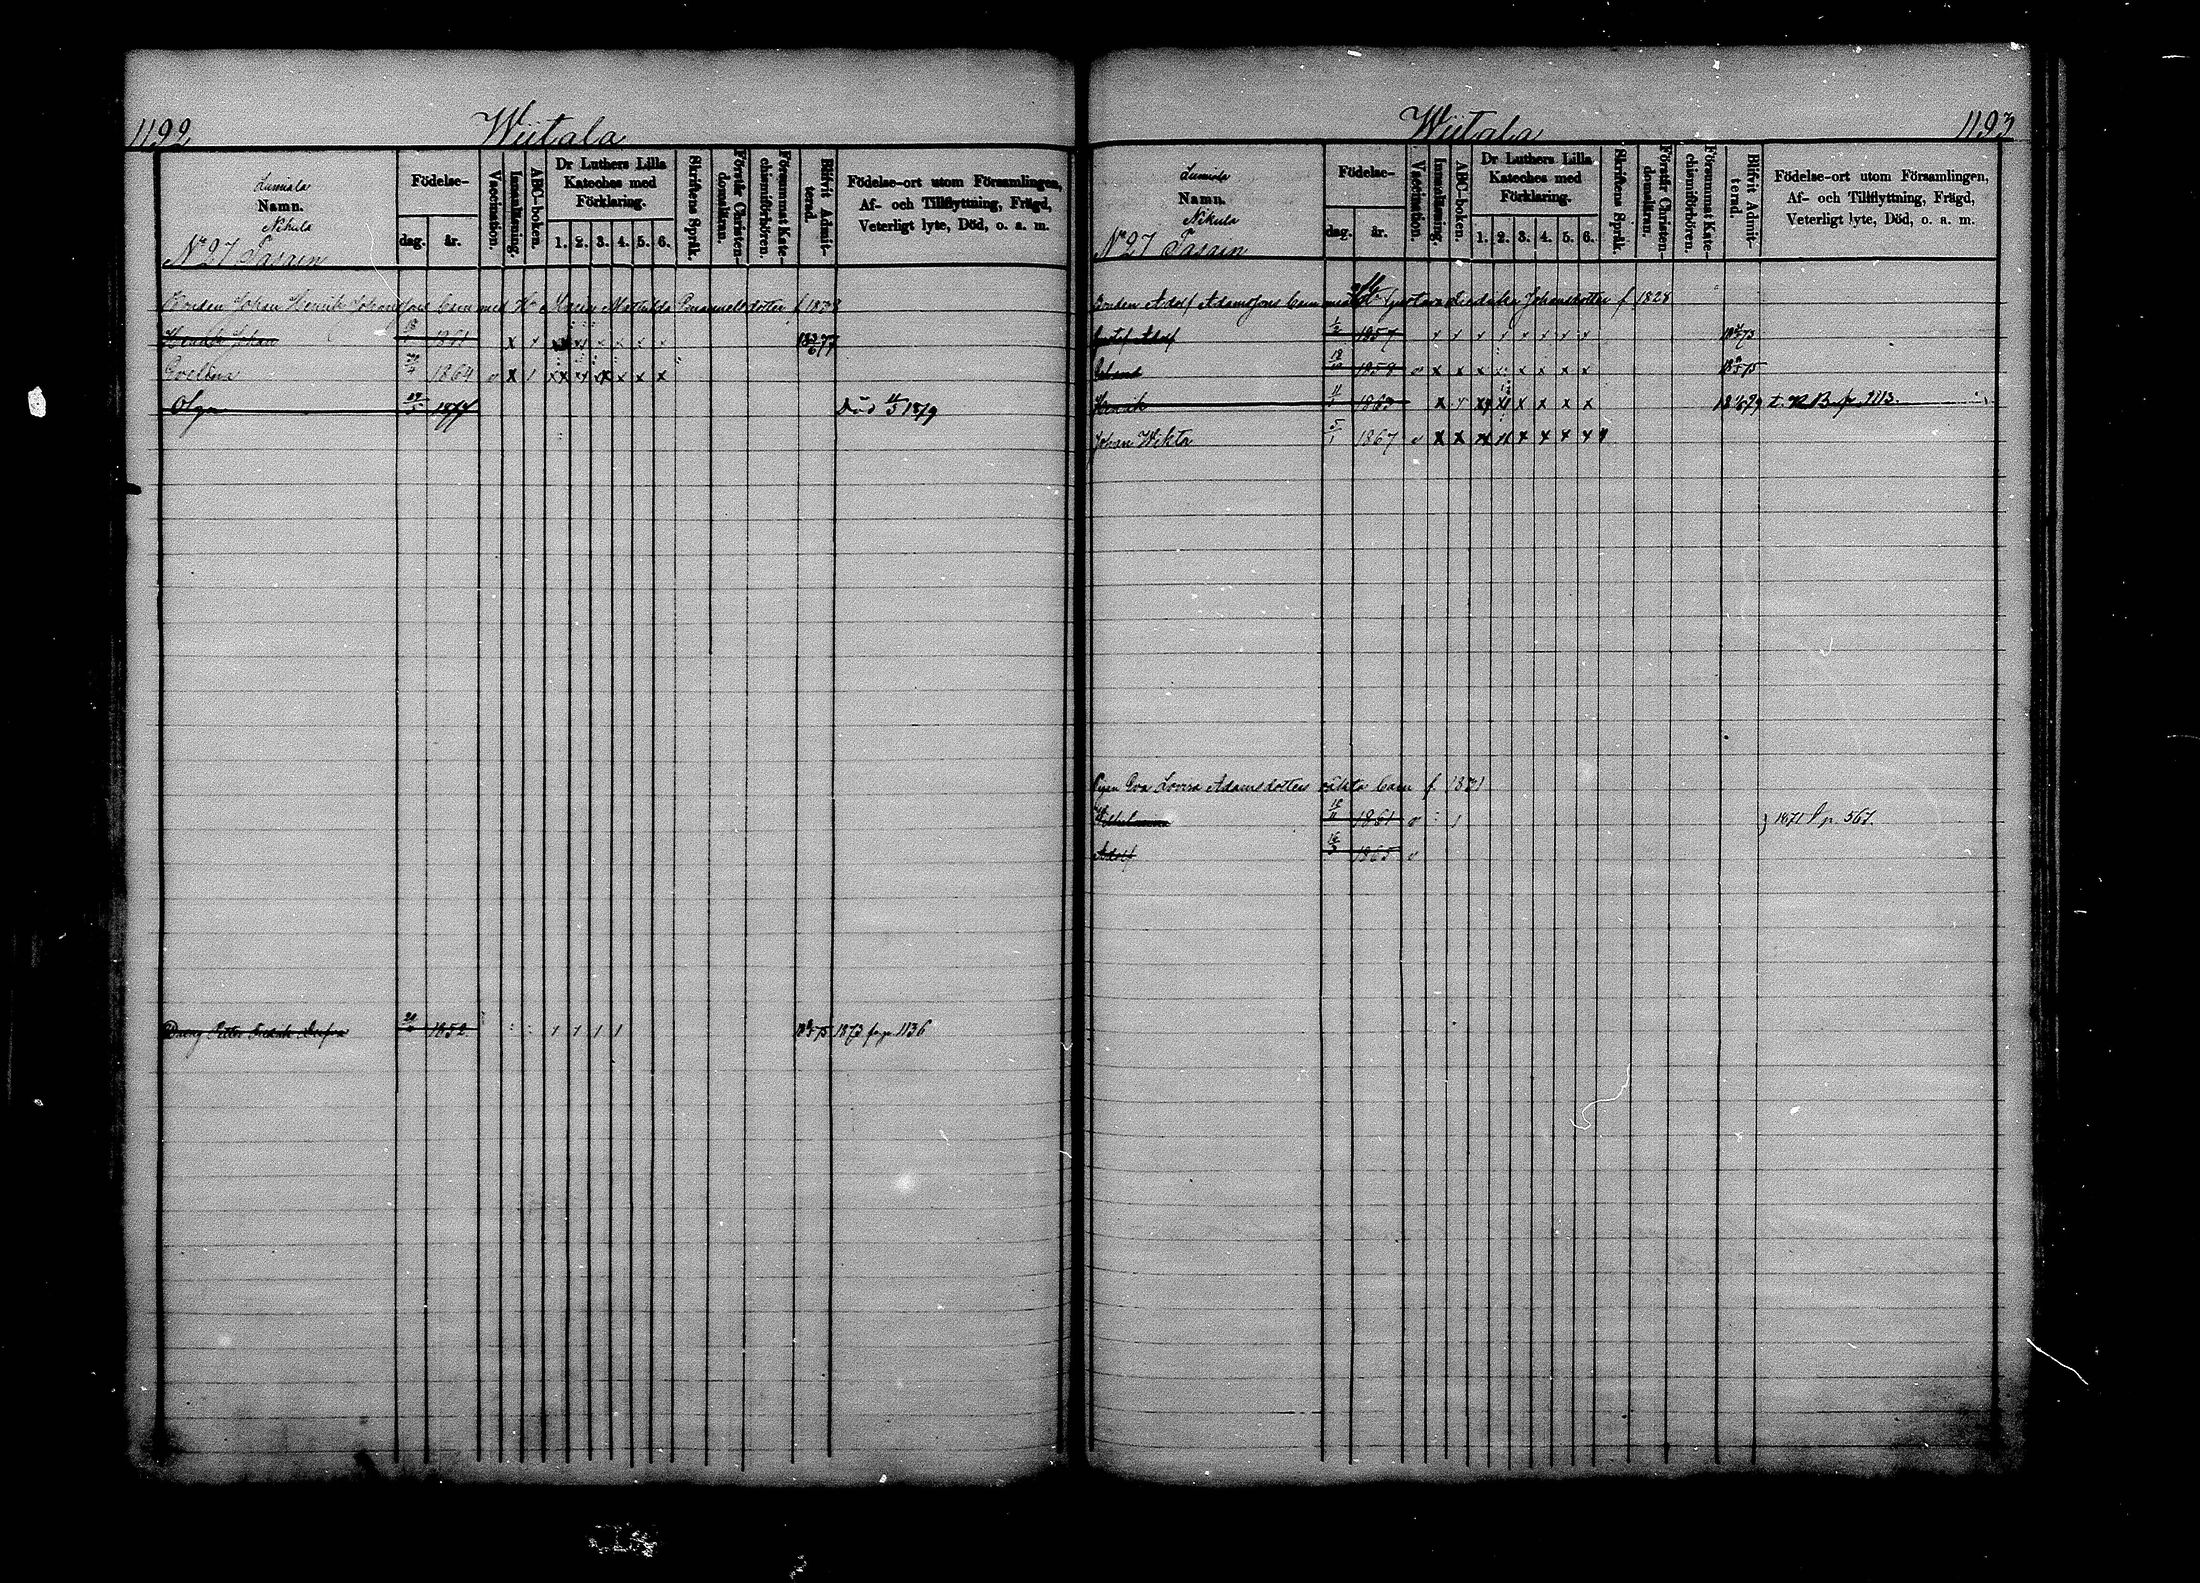 1192 Wiitala
Lumiala
Namn.
Nikula
No 27 Pasain
Födelse-
dag. år.
Vaccination.
Innanläsning.
ABC-boken.
Dr Luthers Lilla
Kateches med
Förklaring.
1. 2. 3. 4. 5. 6.
Skriftens Språk.
Förstår Christen-
domsläran.
Försummat Kate-
chismiförhören.
Blifvit Admit-
terad.
Födelse-ort utom Församlingen,
Af- och Tillflyttning, Frägd,
Veterligt lyte, Död, o. a. m.
Bonden Johan Henrik Johansson barn med H Maria Mathilda Emanuelsdotter f 1838
Henrik Johan 1861 x
Evelina 1864 o x 1 x x x x x x
Olga 1877 Död 1879
Dräng Petter Fredrik 1852 1 1 1 1 1873 pag 1136
Wiitala 1193
Lumiala
Namn.
Nikula
No 27 Pasain
Födelse-
dag. år.
Vaccination.
Innanläsning.
ABC-boken.
Dr Luthers Lilla
Kateches med
Förklaring.
1. 2. 3. 4. 5. 6.
Skriftens Språk.
Förstår Christen-
domsläran.
Försummat Kate-
chismiförhören.
Blifvit Admit-
terad.
Födelse-ort utom Församlingen,
Af- och Tillflyttning, Frägd,
Veterligt lyte, Död, o. a. m.
Bonden Adolf Adamssons barn med Gustava Fredrika Johansdotter f 1828
Gustaf Adolf 1/2 1857
18/10 1858 o x x x x x x x x
Henrik 1863 x x x x x x t. N B p. 1113.
Johan Wikto 5/1 1867 o x x x x x x x x
Pigan Eva Lovisa Adamsdotters oäkta barn f 1831
Wilhelmina 1861 o 1 } 1871 p. 567.
Adolf 1865 o